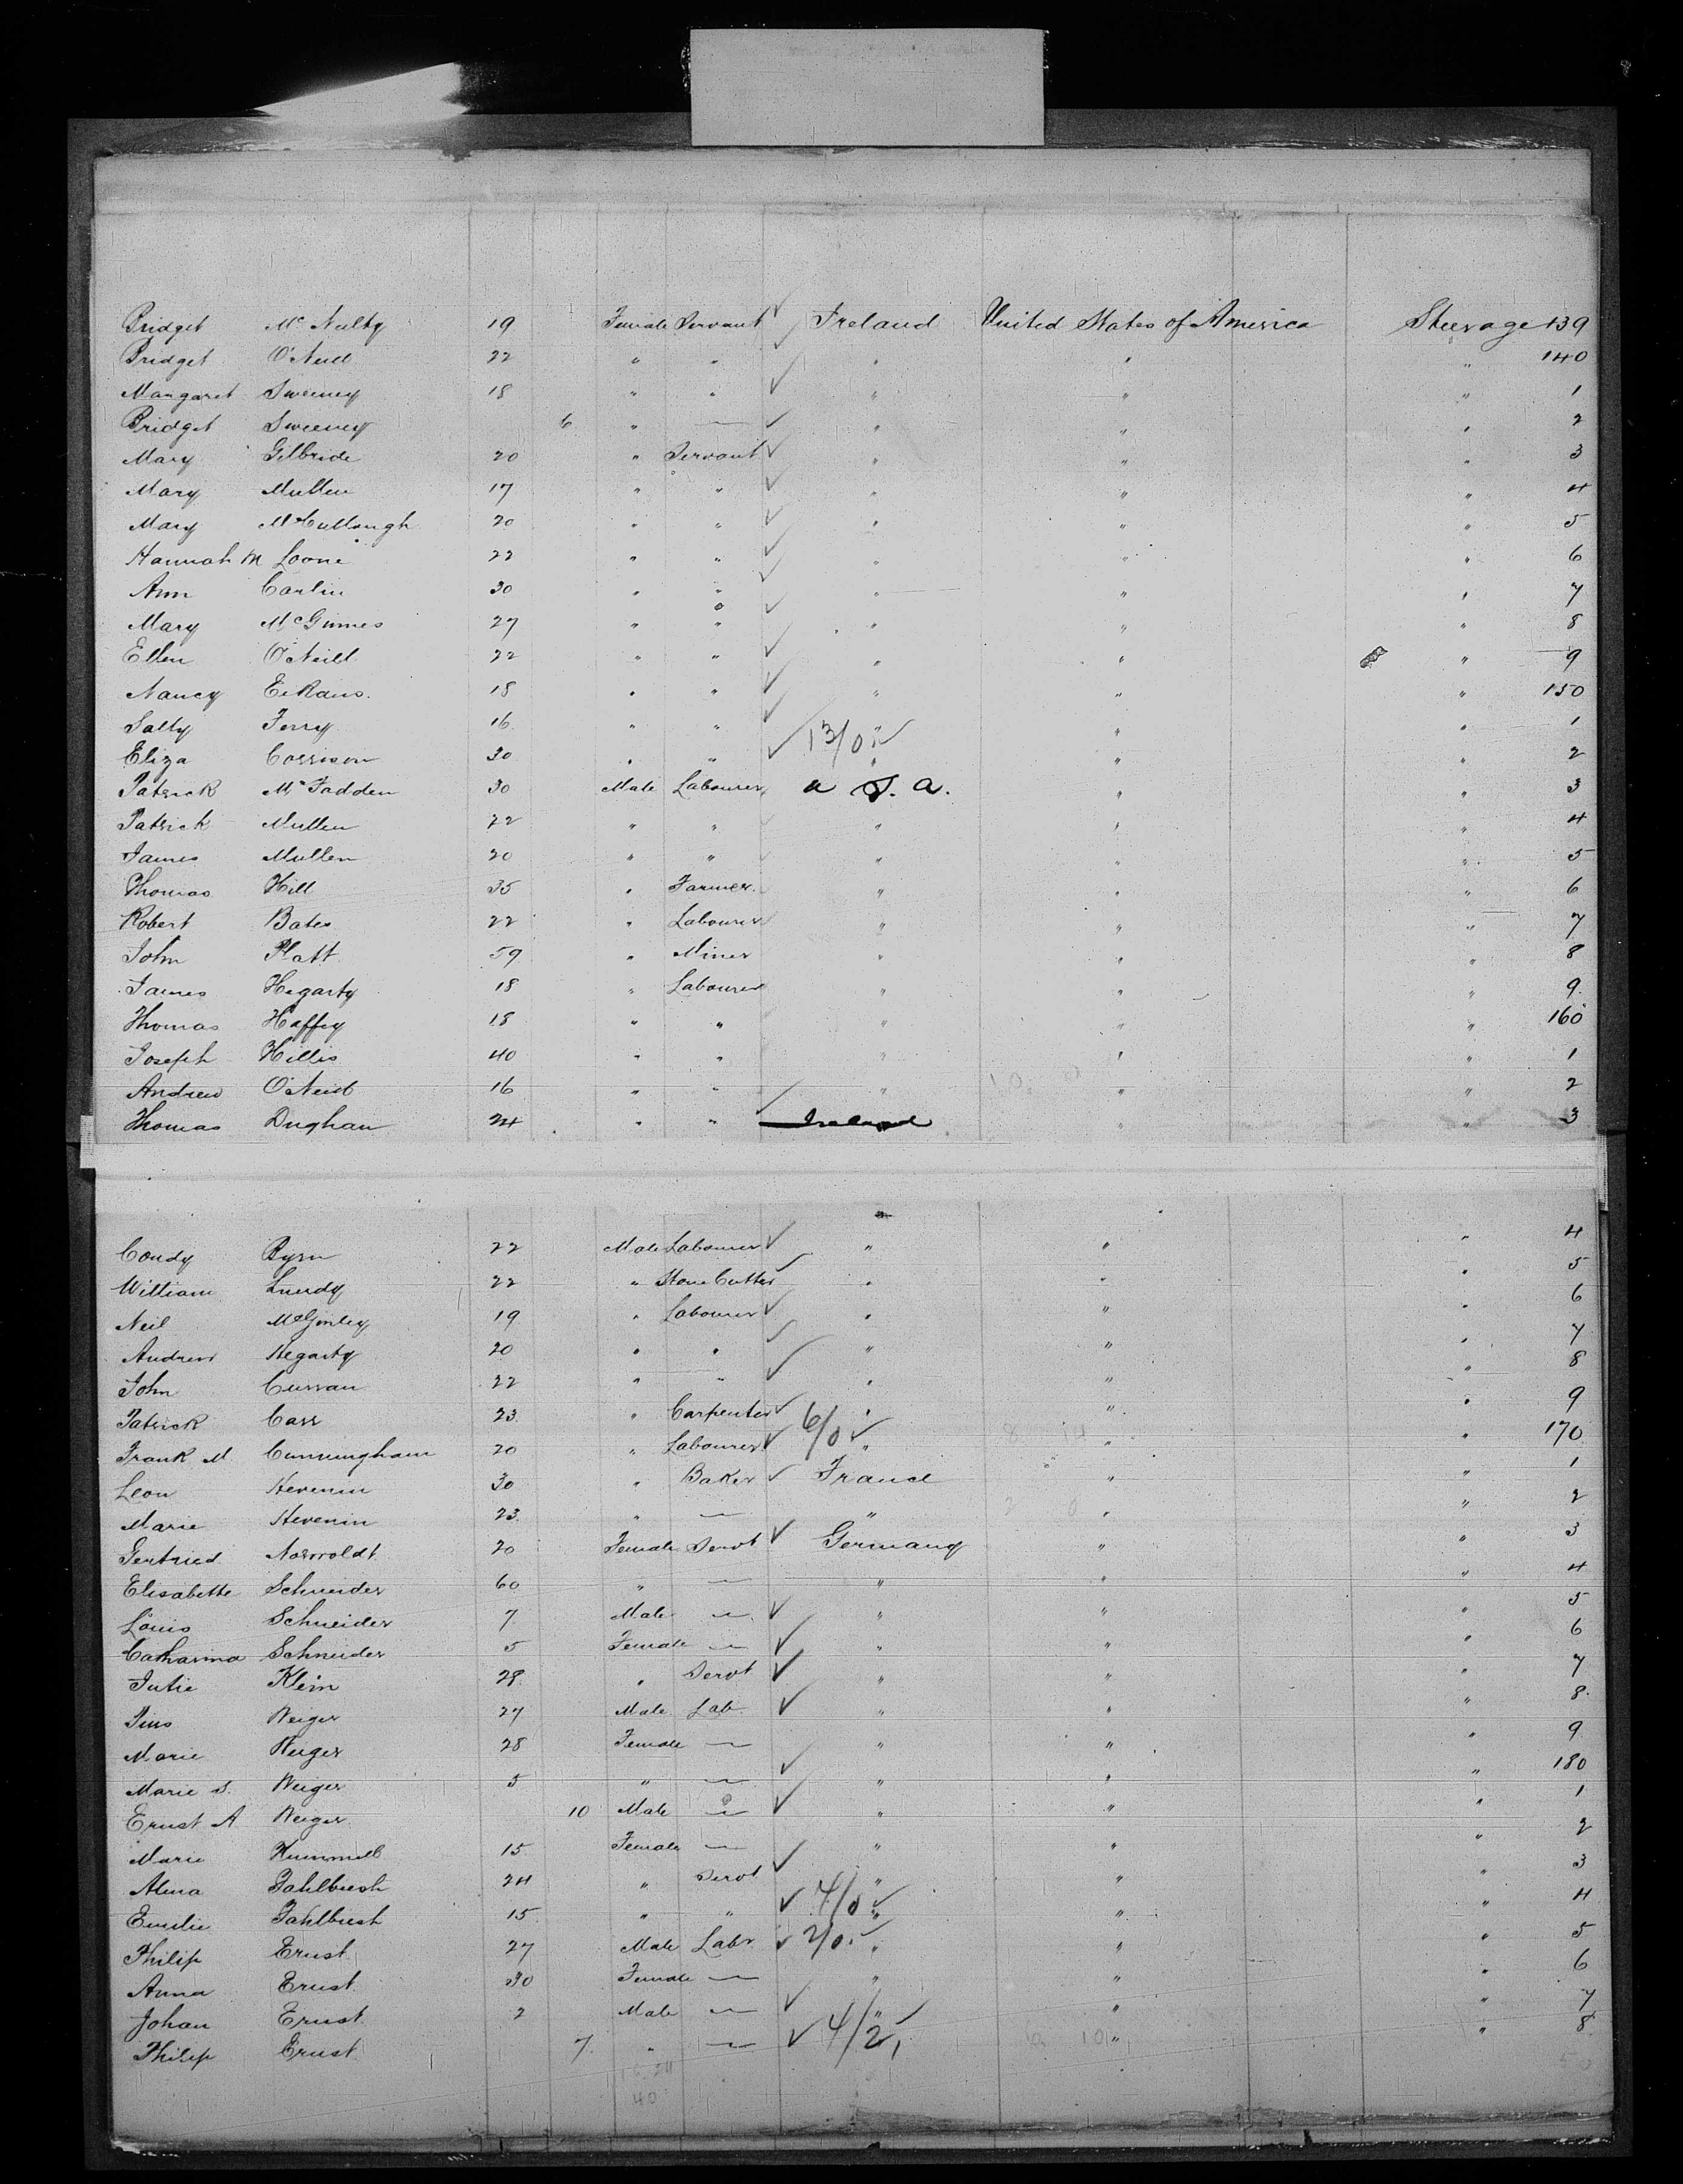 Bridget Mc Nulty 19 Female Servant Ireland United States of America Steerage 139
Bridget O'Neill 22 " " " " " 140
Margaret Sweeney 18 " " " " " 1
Bridget Sweeney 6 " — " " " 2
Mary Gilbride 20 " Servant " " " 3
Mary Mullen 17 " " " " " 4
Mary McCullough 20 " " " " " 5
Hannah M Loone 22 " " " " " 6
Ann Carlin 30 " " " " " 7
Mary McGinnes 27 " " " " " 8
Ellen O'Neill 22 " " " " " 9
Nancy 18 " " " " " 150
Sally Ferry 16 " " 13/0 " " " 1
Eliza Corrison 30 " " " " " 2
Patrick McFadden 30 Male Labourer U S. A. " " 3
Patrick Mullen 22 " " " " " 4
James Mullen 20 " " " " " 5
Thomas Hill 35 " Farmer " " " 6
Robert Bates 22 " Labourer " " " 7
John Platt 59 " Miner " " " 8
James Hegarty 18 " Labourer " " " 9
Thomas Haffey 18 " " " " " 160
Joseph Hillis 40 " " " " " 1
Andrew O'Neill 16 " " " " " 2
Thomas Dughan 24 " " Ireland " " 3
Condy Byrn 22 Male Labourer " " " 4
William Lundy 22 " Stone Cutter " " " 5
Neil McGinley 19 " Labourer " " " 6
Andrew Hegarty 20 " " " " " 7
John Curran 22 " " " " " 8
Patrick Carr 23 " Carpenter " " " 9
Frank M Cunningham 20 " Labourer 6/0 " " " 170
Leon Hevenin 30 " Baker France " " 1
Marie Hevenin 23 " — " " " 2
Gertried 20 Female Servt Germany " " 3
Elisabethe Schneider 60 " — " " " 4
Louis Schneider 7 Male — " " " 5
Catharina Schneider 5 Female — " " " 6
Julie Klein 28 " Servt " " " 7
Pius Weiger 27 Male Lab " " " 8
Marie Weiger 28 Female — " " " 9
Marie S. Weiger 5 " — " " " 180
Ernst A Weiger 10 Male — " " " 1
Marie Hummell 15 Female — " " " 2
Alma Pahlbusch 24 " Servt " " " 3
Emilie Pahlbusch 15 " " 4/0 " " " 4
Philip Ernst 27 Male Labr 2/0 " " " 5
Anna Ernst 30 Female — " " " 6
Johan Ernst 2 Male — " " " 7
Philip Ernst 7 " — 4/2 " " 8